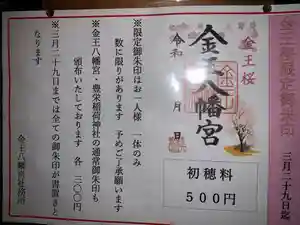 金王桜限定御朱印
三月二十九日迄
金王桜
金王八幡宮
令和 年 月 日
初穂料
500円
※限定御朱印はお一人様 一体のみ
数に限りがあります 予めご了承願います
※金王八幡宮・豊栄稲荷神社の通常御朱印も
頒布いたしております 各 三〇〇円
※三月二十九日までは全ての御朱印が書置きと
なります
金王八幡宮社務所